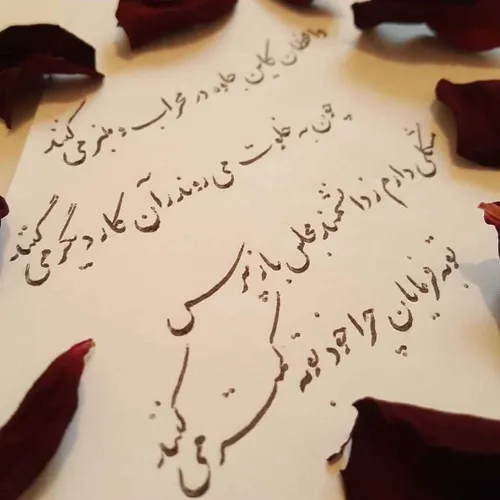 واعظان کاین جلوه در محراب و منبر می کنند
چون به خلوت می روند آن کار دیگر می کنند
مشکلی دارم ز دانشمند مجلس باز پرس
توبه فرمایان چرا خود توبه کمتر می کنند